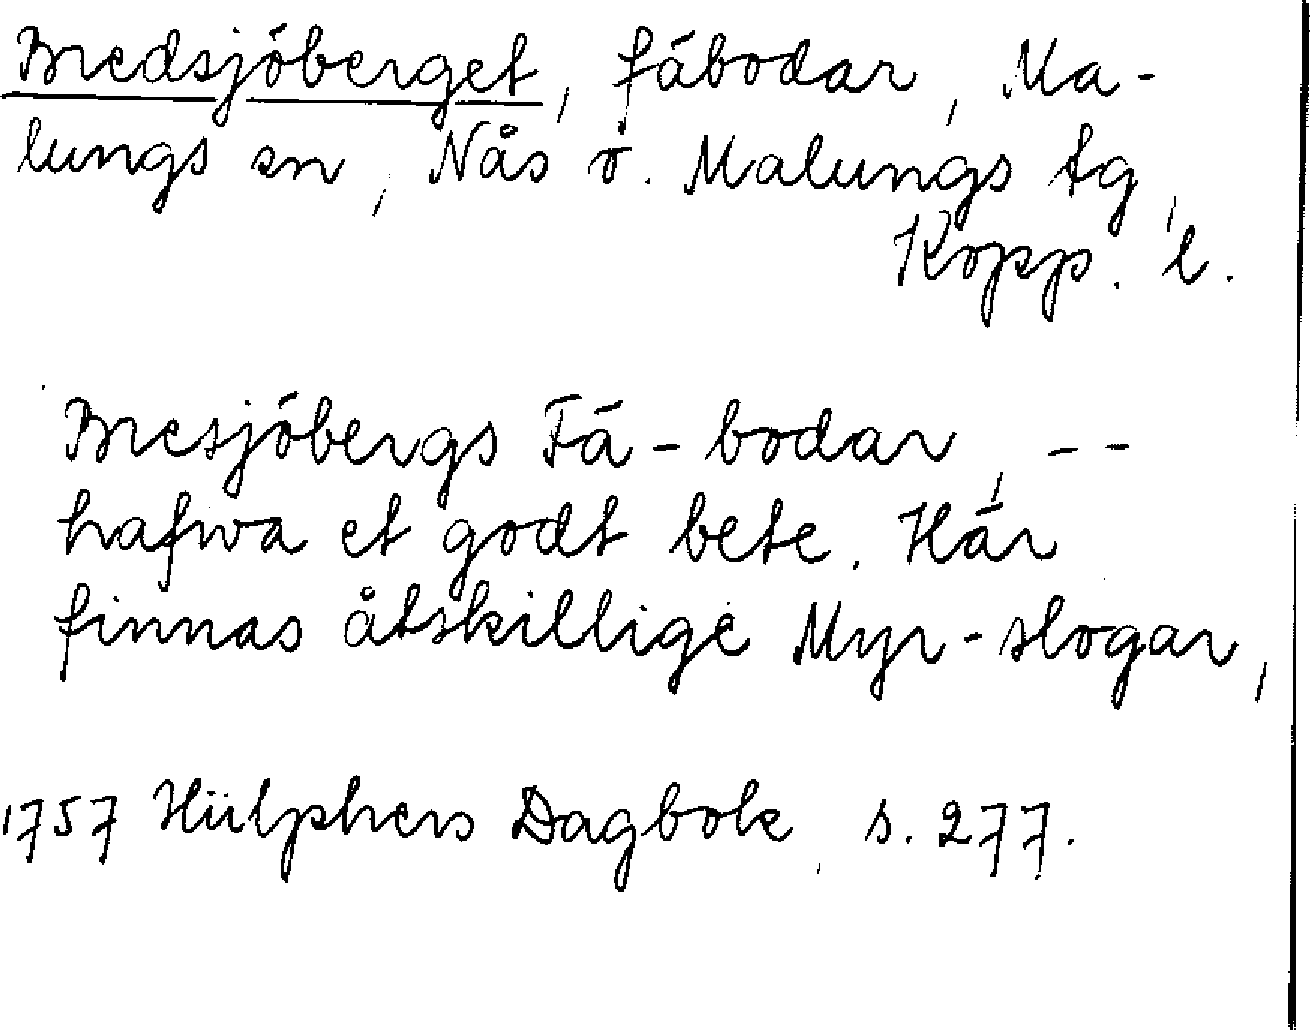 Bredsjöberget, fäbodar, Ma-
lungs sn, Nås o. Malungs tg,
Kopp. l.
Bresjöbergs Fä-bodar, --
hafwa et godt bete. Här
finnas åtskillige Myr-slogar,
1757 Hülphers Dagbok, s. 277.